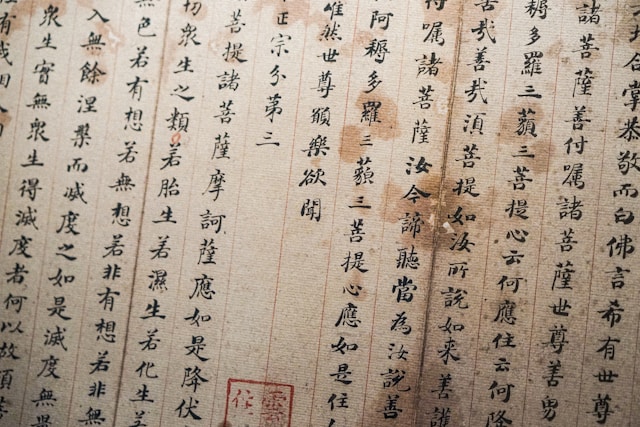 合掌恭敬而白佛言希有世尊
諸菩薩善付囑諸菩薩世尊善男
耨多羅三藐三菩提心云何應住云何降
哉善哉須菩提如汝所說如來善護
付囑諸菩薩汝今諦聽當為汝說善
阿耨多羅三藐三菩提心應如是住
唯然世尊願樂欲聞
正宗分第三
菩提諸菩薩摩訶薩應如是降伏
切眾生之類若胎生若濕生若化生若
色若有想若無想若非有想若非無
入無餘涅槃而滅度之如是滅度無量
眾生實無眾生得滅度者何以故須菩
有我相